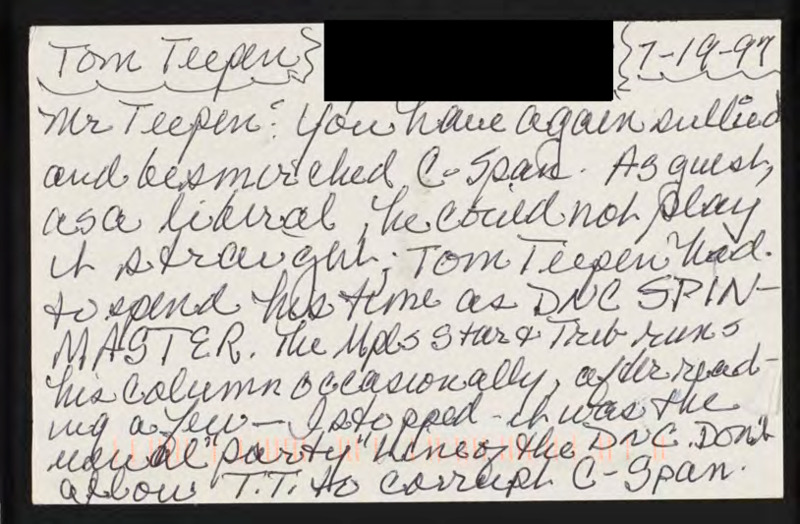 Tom Teepen 7-19-97
Mr Teepen: You have again sullied
and besmirched C-Span. As guest,
as a liberal, he could not play
it straight; Tom Teepen had
to spend his time as DNC SPIN-
MASTER. The Mpls Star & Trib runs
his column occasionally, after read-
ing a few - I stopped - it was the
usual "party" line of the DNC. Don't
allow T.T. to corrupt C-Span.